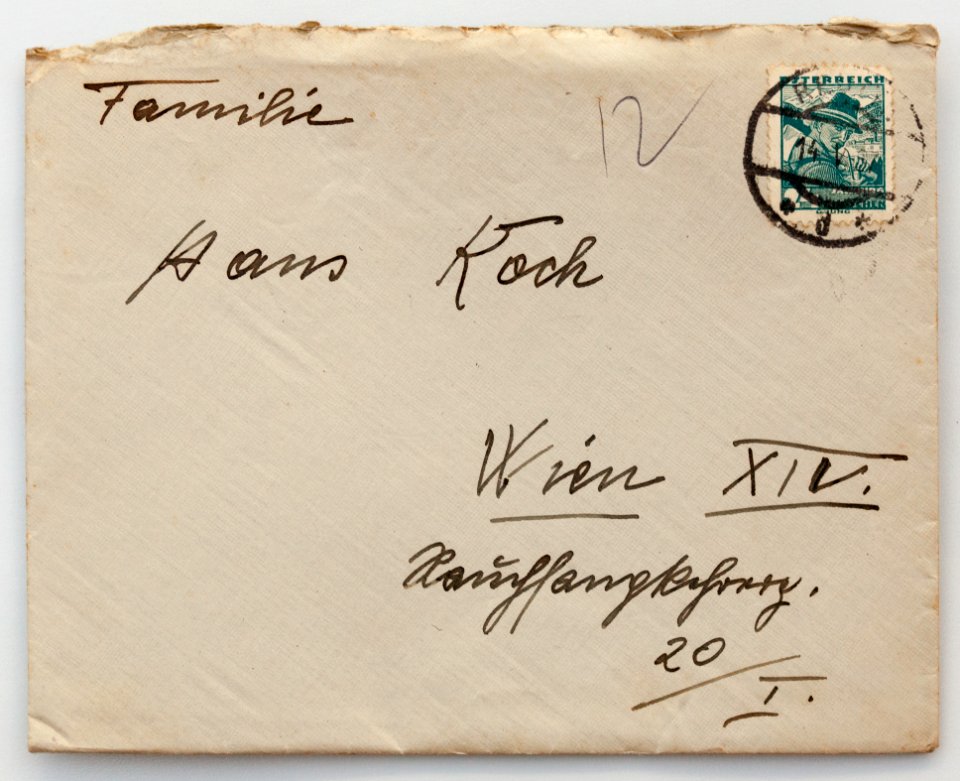 Familie
12
ÖSTERREICH
Hans Koch
Wien XIV.
Rauchfangkehrerg.
20/I.